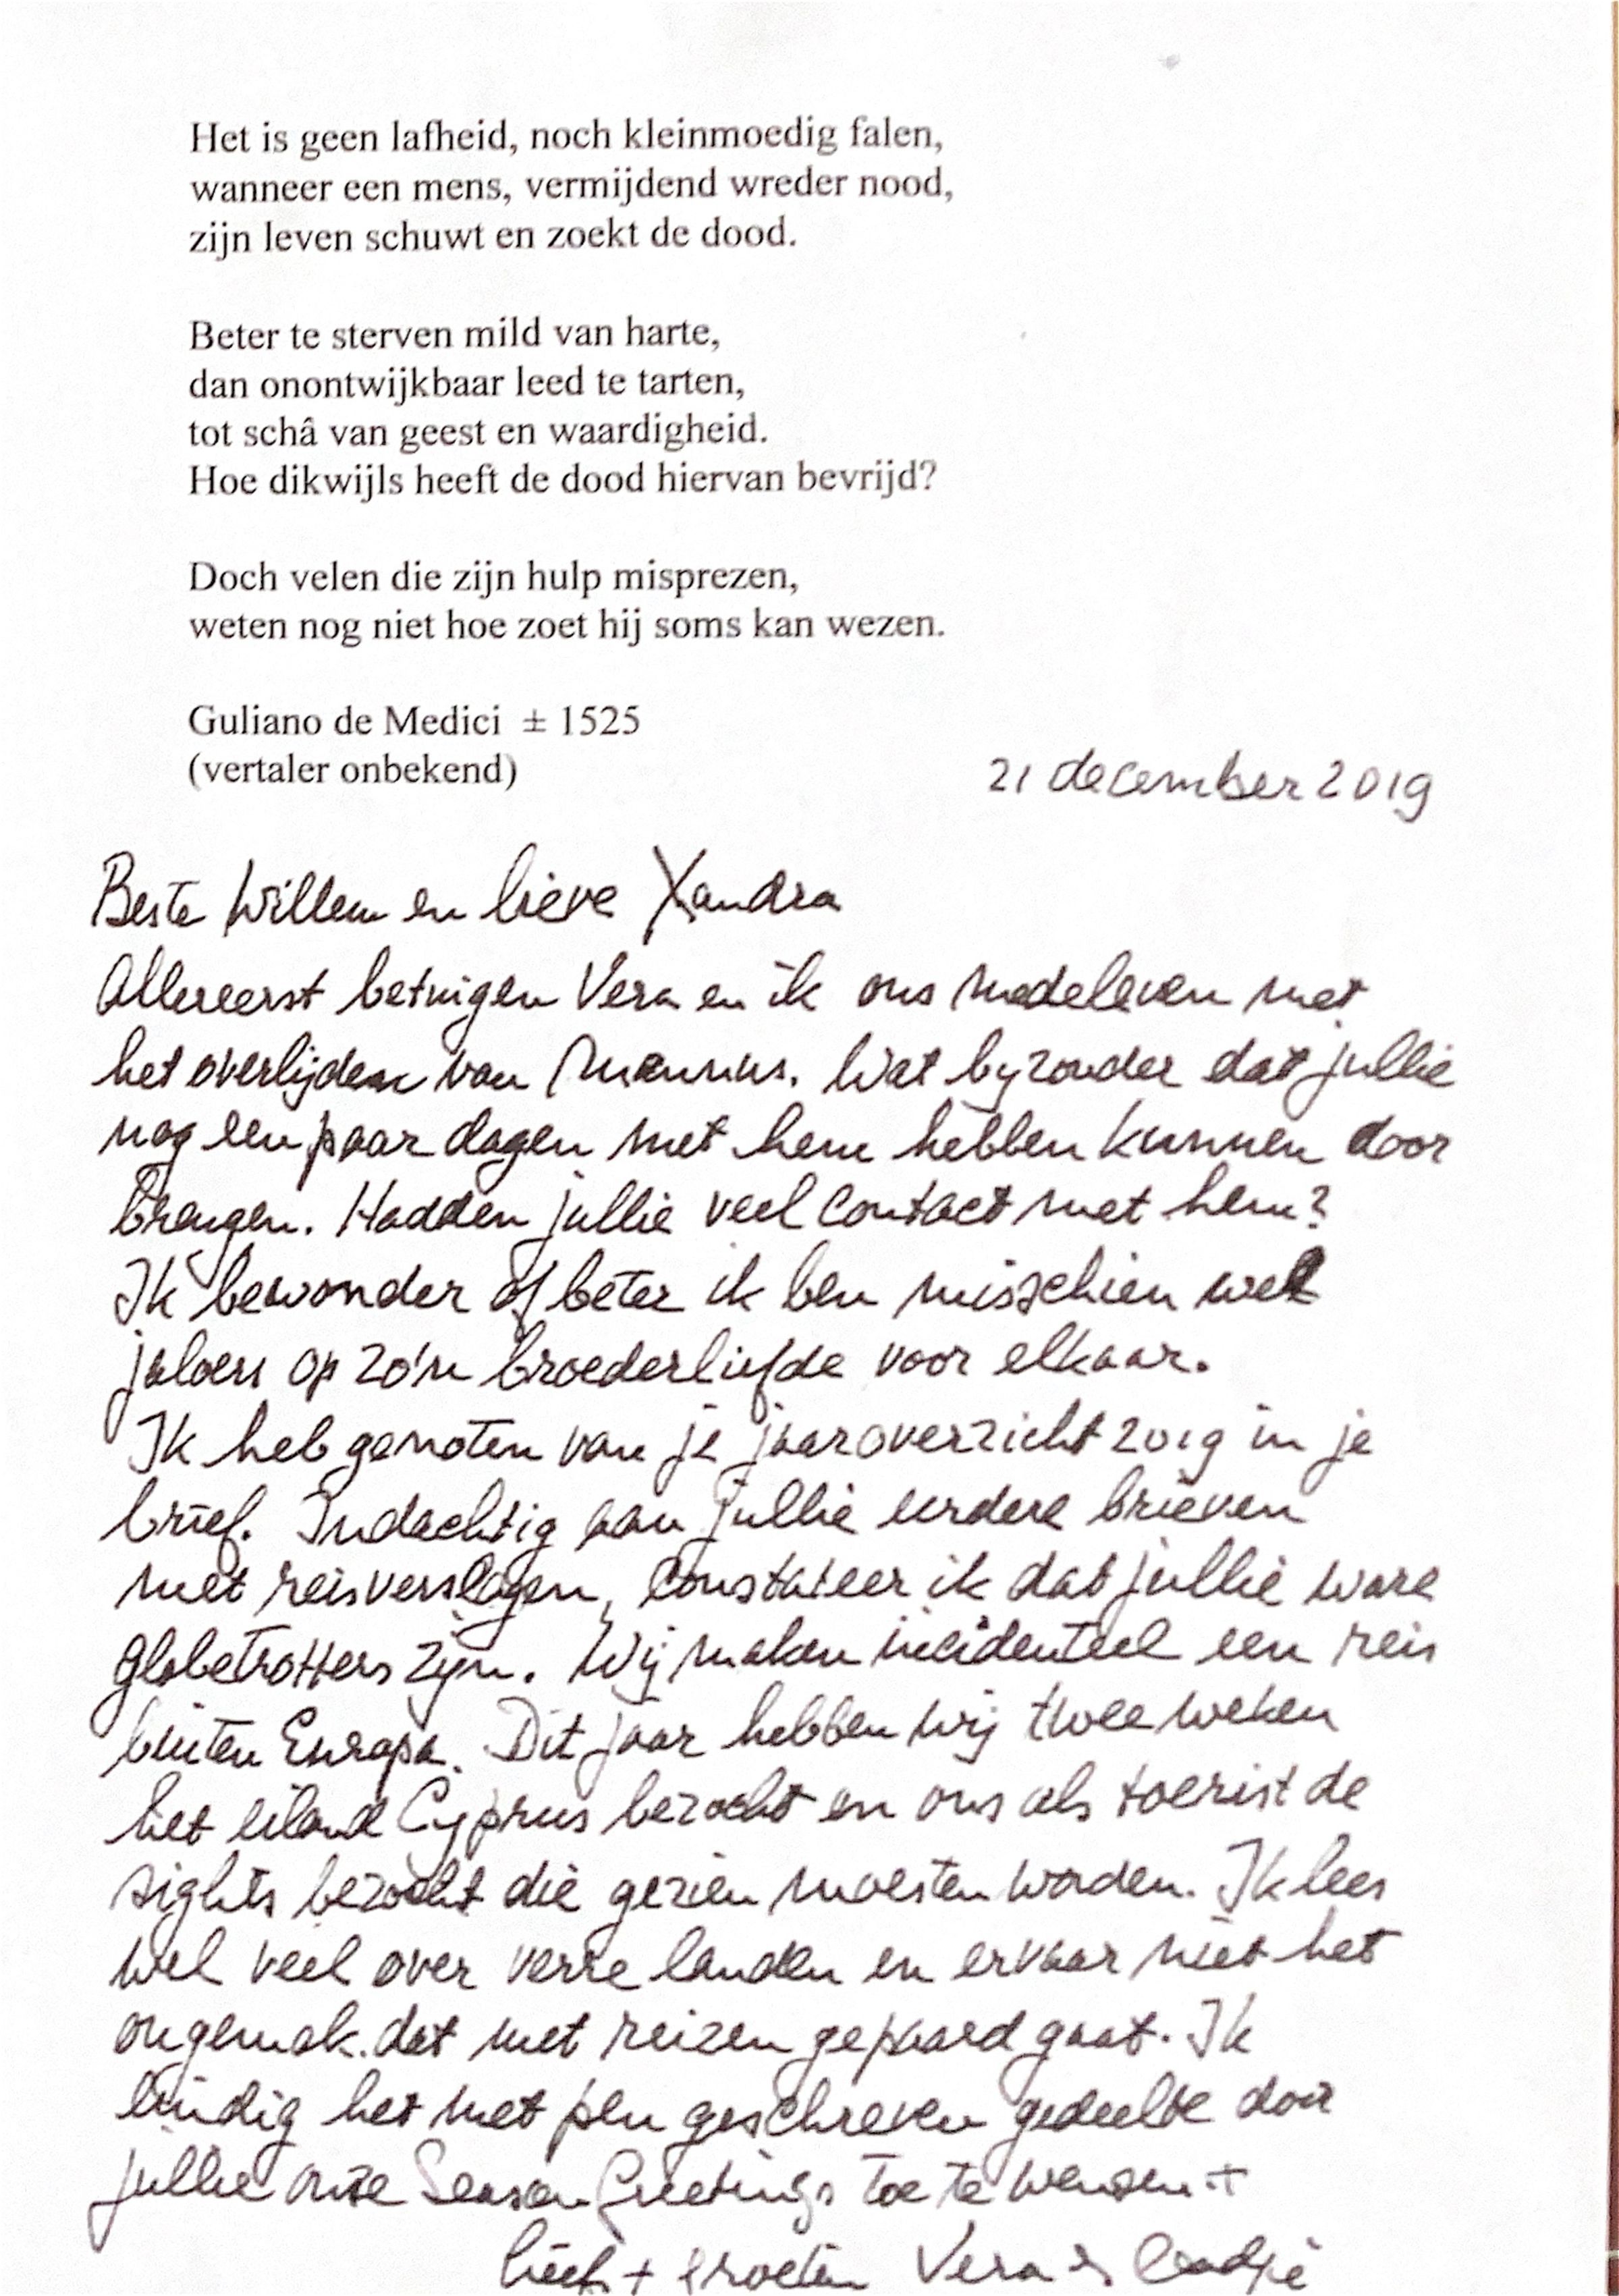 Het is geen lafheid, noch kleinmoedig falen,
wanneer een mens, vermijdend wreder nood,
zijn leven schuwt en zoekt de dood.
Beter te sterven mild van harte,
dan onontwijkbaar leed te tarten,
tot schâ van geest en waardigheid.
Hoe dikwijls heeft de dood hiervan bevrijd?
Doch velen die zijn hulp misprezen,
weten nog niet hoe zoet hij soms kan wezen.
Guliano de Medici ± 1525
(vertaler onbekend)
21 december 2019
Beste Willem en lieve Xandra
Allereerst betuigen Vera en ik ons medeleven met
het overlijden van Mannus. Wat byzonder dat jullie
nog een paar dagen met hem hebben kunnen door
brengen. Hadden jullie veel contact met hem?
Ik bewonder of beter ik ben misschien wel
jaloers op zo'n broederliefde voor elkaar.
Ik heb genoten van je jaaroverzicht 2019 in je
brief. Indachtig aan jullie eerdere brieven
met reisverslagen, constateer ik dat jullie ware
globetrotters zijn. Wij maken incidenteel een reis
buiten Europa. Dit jaar hebben wij twee weken
het eiland Cyprus bezocht en ons als toerist de
sights bezocht die gezien moesten worden. Ik lees
wel veel over verre landen en ervaar niet het
ongemak dat met reizen gepaard gaat. Ik
eindig het met pen geschreven gedeelte door
jullie onze Season Greetings toe te wensen +
liefs + groeten Vera &